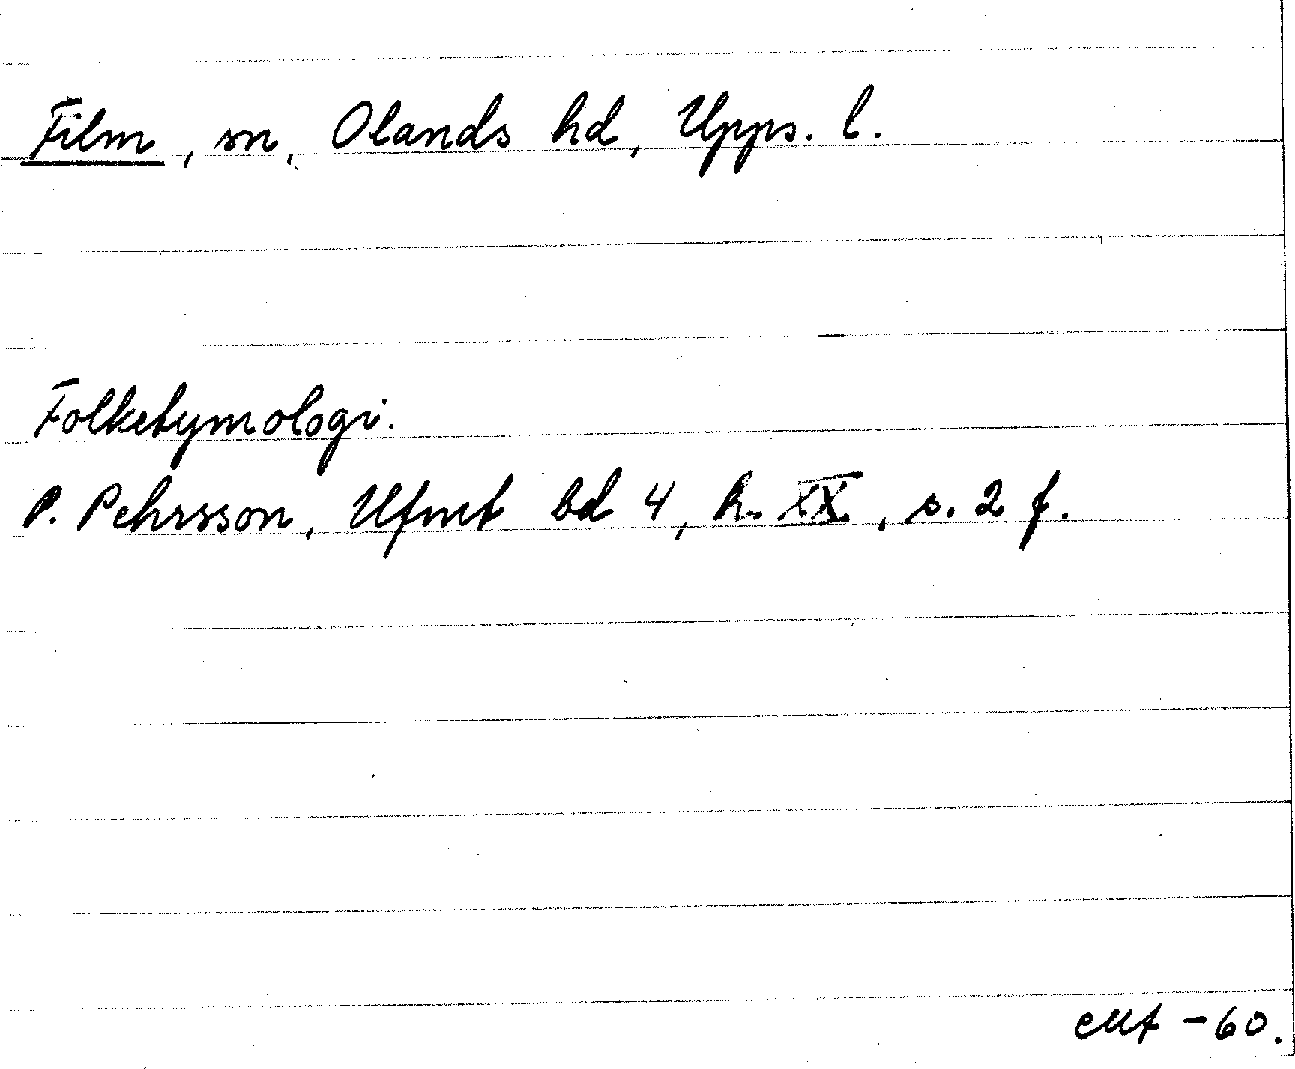 Film, sn, Olands hd, Upps. l.
Folketymologi.
P. Pehrsson, Ufmt bd 4, h. XX, s. 2 f.
-60.